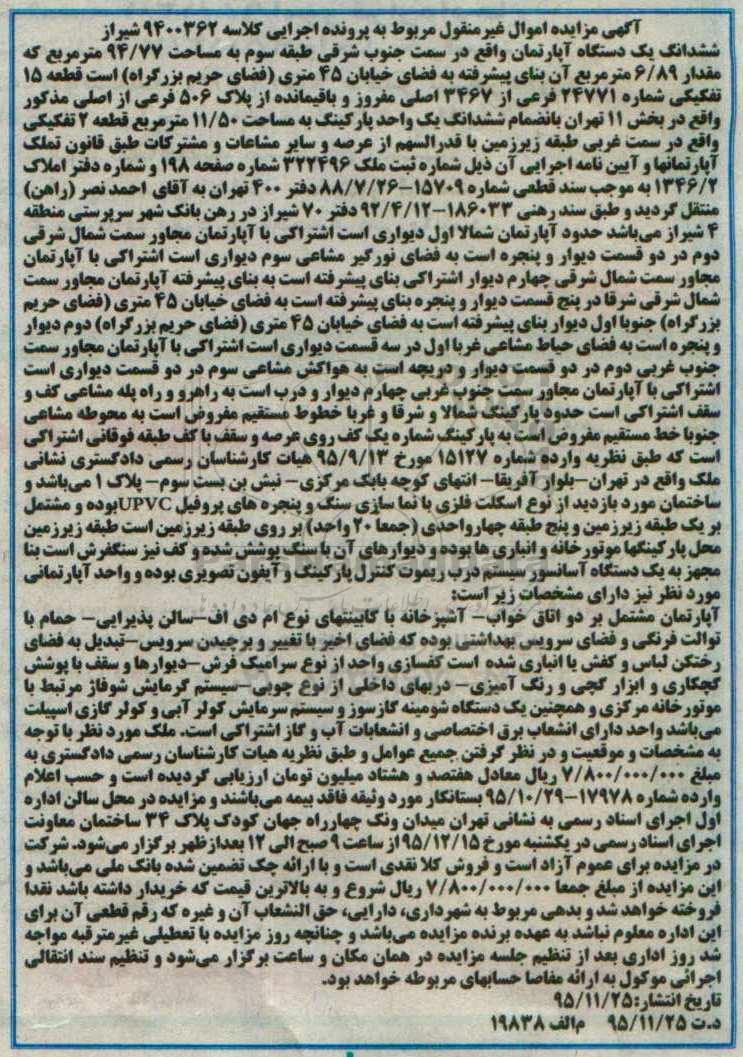 آگهی مزایده اموال غیرمنقول مربوط به پرونده اجرایی کلاسه ۹۴۰۰۳۶۲ شیراز
ششدانگ یک دستگاه آپارتمان واقع در سمت جنوب شرقی طبقه سوم به مساحت ۹۴/۷۷ مترمربع که
مقدار ۶/۸۹ مترمربع آن بنای پیشرفته به فضای خیابان ۴۵ متری (فضای حریم بزرگراه) است قطعه ۱۵
تفکیکی شماره ۲۴۷۷۱ فرعی از ۳۴۶۷ اصلی مفروز و باقیمانده از پلاک ۵۰۶ فرعی از اصلی مذکور
واقع در بخش ۱۱ تهران بانضمام ششدانگ یک واحد پارکینگ به مساحت ۱۱/۵۰ مترمربع قطعه ۲ تفکیکی
واقع در سمت غربی طبقه زیرزمین با قدرالسهم از عرصه و سایر مشاعات و مشترکات طبق قانون تملک
آپارتمانها و آیین نامه اجرایی آن ذیل شماره ثبت ملک ۳۲۲۴۹۶ شماره صفحه ۱۹۸ و شماره دفتر املاک
۱۳۴۶/۲ به موجب سند قطعی شماره ۱۵۷۰۹-۸۸/۷/۲۶ دفتر ۴۰۰ تهران به آقای احمد نصر (راهن)
منتقل گردید و طبق سند رهنی ۱۸۶۰۳۳-۹۲/۴/۱۲ دفتر ۷۰ شیراز در رهن بانک شهر سرپرستی منطقه
۴ شیراز می‌باشد حدود آپارتمان شمالا اول دیواری است اشتراکی با آپارتمان مجاور سمت شمال شرقی
دوم در دو قسمت دیوار و پنجره است به فضای نورگیر مشاعی سوم دیواری است اشتراکی با آپارتمان
مجاور سمت شمال شرقی چهارم دیوار اشتراکی بنای پیشرفته است به بنای پیشرفته آپارتمان مجاور سمت
شمال شرقی شرقا در پنج قسمت دیوار و پنجره بنای پیشرفته است به فضای خیابان ۴۵ متری (فضای حریم
بزرگراه) جنوبا اول دیوار بنای پیشرفته است به فضای خیابان ۴۵ متری (فضای حریم بزرگراه) دوم دیوار
و پنجره است به فضای حیاط مشاعی غربا اول در سه قسمت دیواری است اشتراکی با آپارتمان مجاور سمت
جنوب غربی دوم در دو قسمت دیوار و دریچه است به هواکش مشاعی سوم در دو قسمت دیواری است
اشتراکی با آپارتمان مجاور سمت جنوب غربی چهارم دیوار و درب است به راهرو و راه پله مشاعی کف و
سقف اشتراکی است حدود پارکینگ شمالا و شرقا و غربا خطوط مستقیم مفروض است به محوطه مشاعی
جنوبا خط مستقیم مفروض است به پارکینگ شماره یک کف روی عرصه و سقف با کف طبقه فوقانی اشتراکی
است که طبق نظریه وارده شماره ۱۵۱۲۷ مورخ ۹۵/۹/۱۳ هیات کارشناسان رسمی دادگستری نشانی
ملک واقع در تهران-بلوار آفریقا- انتهای کوچه بابک مرکزی- نبش بن بست سوم- پلاک ۱ می‌باشد و
ساختمان مورد بازدید از نوع اسکلت فلزی با نما سازی سنگ و پنجره های پروفیل UPVC بوده و مشتمل
بر یک طبقه زیرزمین و پنج طبقه چهارواحدی (جمعا ۲۰ واحد) بر روی طبقه زیرزمین است طبقه زیرزمین
محل پارکینگها موتورخانه و انباری ها بوده و دیوارهای آن با سنگ پوشش شده و کف نیز سنگفرش است بنا
مجهز به یک دستگاه آسانسور سیستم درب ریموت کنترل پارکینگ و آیفون تصویری بوده و واحد آپارتمانی
مورد نظر نیز دارای مشخصات زیر است:
آپارتمان مشتمل بر دو اتاق خواب- آشپزخانه با کابینتهای نوع ام دی اف-سالن پذیرایی- حمام با
توالت فرنگی و فضای سرویس بهداشتی بوده که فضای اخیر با تغییر و برچیدن سرویس-تبدیل به فضای
رختکن لباس و کفش یا انباری شده است کفسازی واحد از نوع سرامیک فرش-دیوارها و سقف با پوشش
گچکاری و ابزار گچی و رنگ آمیزی- دربهای داخلی از نوع چوبی-سیستم گرمایش شوفاژ مرتبط با
موتورخانه مرکزی و همچنین یک دستگاه شومینه گازسوز و سیستم سرمایش کولر آبی و کولر گازی اسپیلت
می‌باشد واحد دارای انشعاب برق اختصاصی و انشعابات آب و گاز اشتراکی است. ملک مورد نظر با توجه
به مشخصات و موقعیت و در نظر گرفتن جمیع عوامل و طبق نظریه هیات کارشناسان رسمی دادگستری به
مبلغ ۷/۸۰۰/۰۰۰/۰۰۰ ریال معادل هفتصد و هشتاد میلیون تومان ارزیابی گردیده است و حسب اعلام
وارده شماره ۱۷۹۷۸-۹۵/۱۰/۲۹ بستانکار مورد وثیقه فاقد بیمه می‌باشند و مزایده در محل سالن اداره
اول اجرای اسناد رسمی به نشانی تهران میدان ونک چهارراه جهان کودک پلاک ۳۴ ساختمان معاونت
اجرای اسناد رسمی در یکشنبه مورخ ۹۵/۱۲/۱۵ از ساعت ۹ صبح الی ۱۲ بعدازظهر برگزار می‌شود. شرکت
در مزایده برای عموم آزاد است و فروش کلا نقدی است و با ارائه چک تضمین شده بانک ملی می‌باشد و
این مزایده از مبلغ جمعا ۷/۸۰۰/۰۰۰/۰۰۰ ریال شروع و به بالاترین قیمت که خریدار داشته باشد نقدا
فروخته خواهد شد و بدهی مربوط به شهرداری، دارایی، حق النشعاب آن و غیره که رقم قطعی آن برای
این اداره معلوم نباشد به عهده برنده مزایده می‌باشد و چنانچه روز مزایده با تعطیلی غیرمترقبه مواجه
شد روز اداری بعد از تنظیم جلسه مزایده در همان مکان و ساعت برگزار می‌شود و تنظیم سند انتقالی
اجرائی موکول به ارائه مفاصا حسابهای مربوطه خواهد بود.
تاریخ انتشار: ۹۵/۱۱/۲۵
د.ت ۹۵/۱۱/۲۵ م‌الف ۱۹۸۳۸